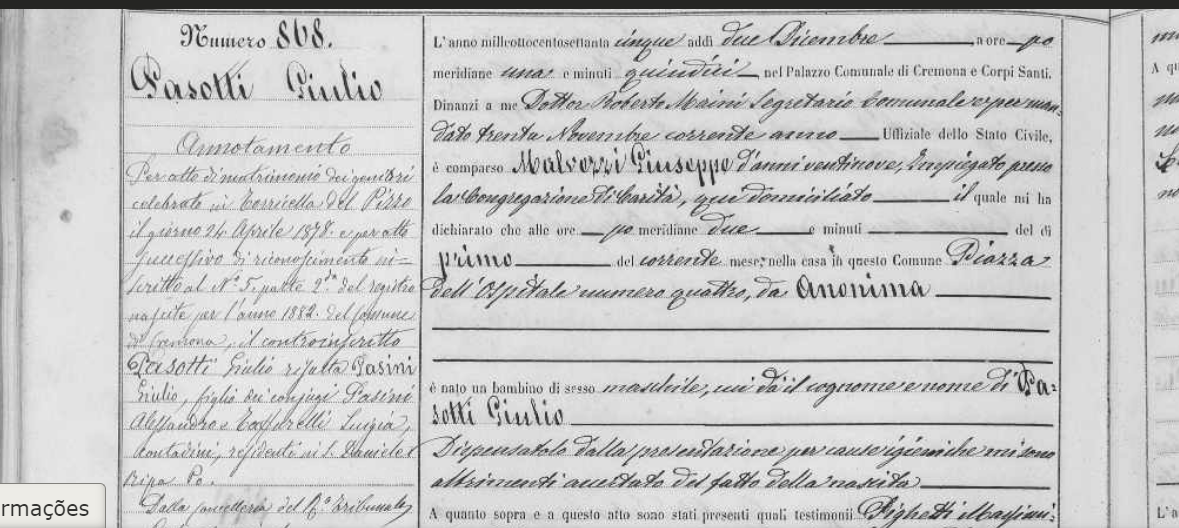 Numero 868.
Pasotti Giulio
Annotamento
Per atto di matrimonio dei genitori
celebrato in Torricella del Pizzo
il giorno 24 Aprile 1878. e per atto
successivo di riconoscimento in=
scritto al Nº 5. parte 2ª del registro
nascite per l'anno 1882. del Comune
di Cremona, il controinscritto
Pasotti Giulio risulta Pasini
Giulio, figlio dei coniugi Pasini
Alessandro e Luigia,
contadini, residenti in S. Daniele
Ripa Po.
Dalla Cancelleria del Rº Tribunale
L'anno milleottocentosettanta cinque addì due Dicembre a ore po
meridiane una e minuti quindici, nel Palazzo Comunale di Cremona e Corpi Santi.
Dinanzi a me Dottor Roberto Maini Segretario Comunale e per man=
dato trenta Novembre corrente anno Uffiziale dello Stato Civile,
è comparso Malvezzi Giuseppe d'anni ventinove, Impiegato presso
la Congregazione di Carità, qui domiciliato il quale mi ha
dichiarato che alle ore po meridiane due e minuti del dì
primo del corrente mese, nella casa in questo Comune Piazza
dell'Ospitale numero quattro, da Anonima
è nato un bambino di sesso maschile, cui dà il cognome e nome di Pa=
sotti Giulio
Dispensatolo dalla presentazione per cause igieniche mi sono
altrimenti accertato del fatto della nascita
A quanto sopra e a questo atto sono stati presenti quali testimonii Righetti Massimi=
rmações
A qu
L'a